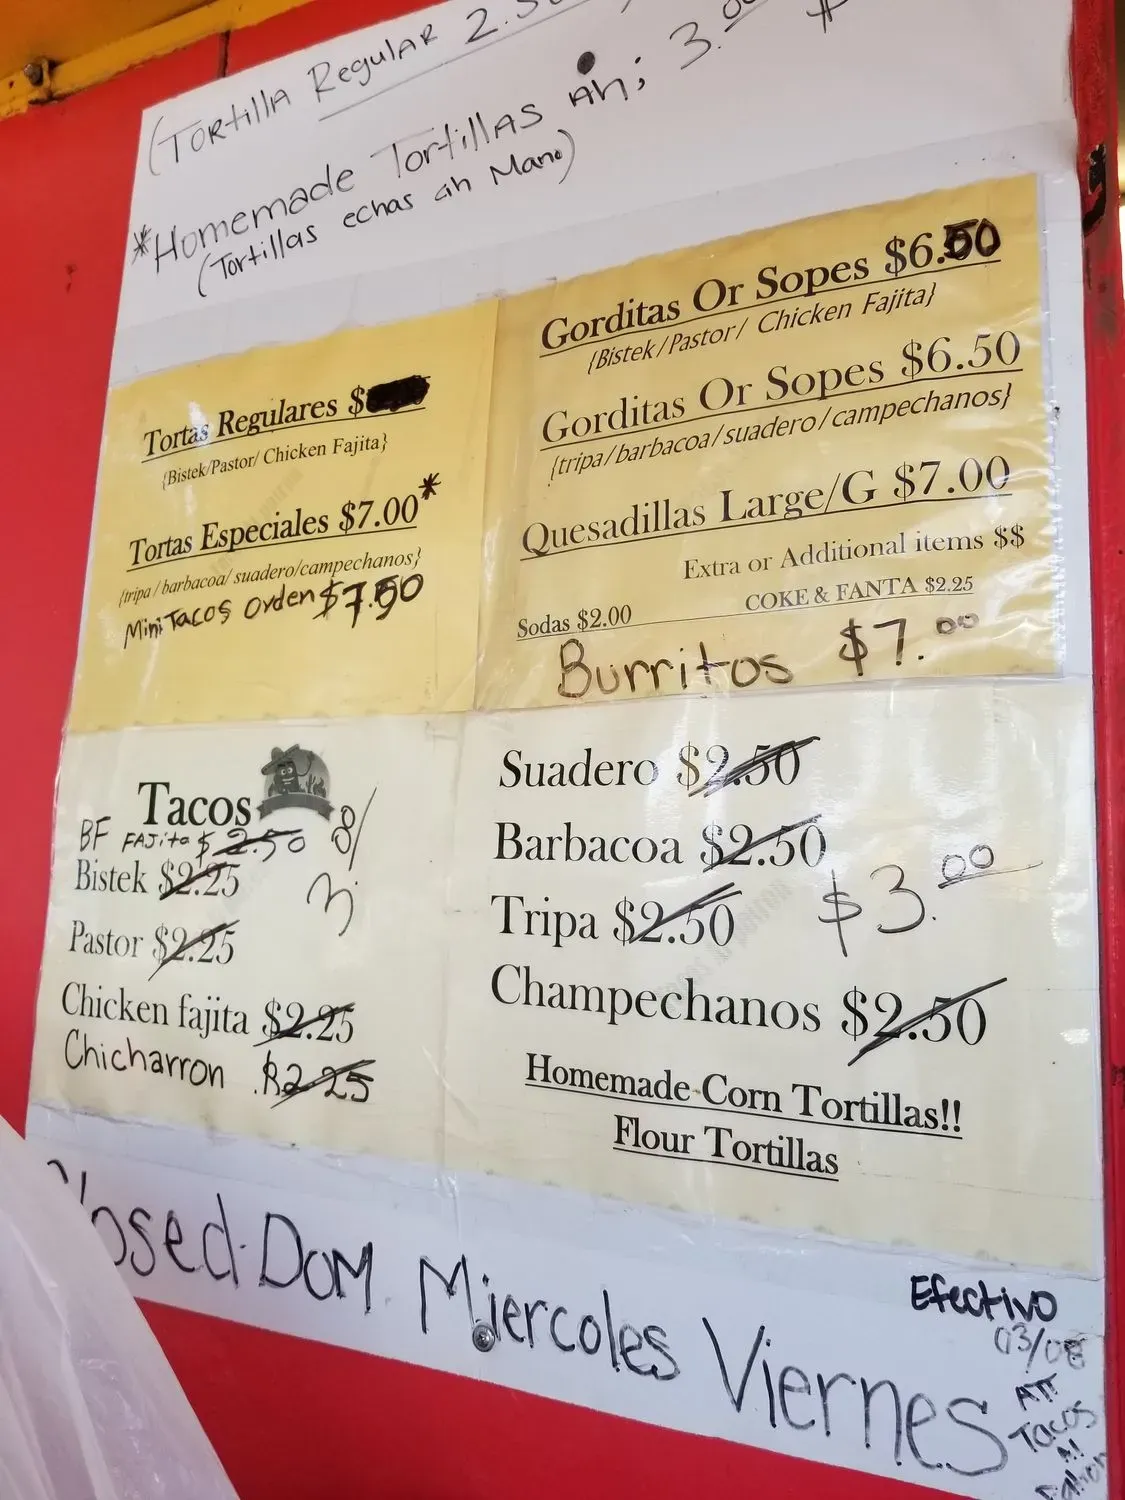 (TORtillA RegulAR 2.50
*Homemade TortillAS AH; 3.00 $
(Tortillas echas ah Mano)
Tortas Regulares $
{Bistek/Pastor/ Chicken Fajita}
Tortas Especiales $7.00*
{tripa/barbacoa/suadero/campechanos}
Mini TACOS Orden $7.50
Gorditas Or Sopes $6.50
{Bistek/Pastor/ Chicken Fajita}
Gorditas Or Sopes $6.50
{tripa/barbacoa/suadero/campechanos}
Quesadillas Large/G $7.00
Extra or Additional items $$
COKE & FANTA $2.25
Sodas $2.00
Burritos $7.00
Tacos
BF FAJita $2.50
Bistek $2.25
Pastor $2.25
Chicken fajita $2.25
Chicharron $2.25
Suadero $2.50
Barbacoa $2.50
Tripa $2.50
$3.00
Champechanos $2.50
Homemade Corn Tortillas!!
Flour Tortillas
Closed. DOM. Miercoles Viernes
Efectivo
03/08
ATT
TACOS